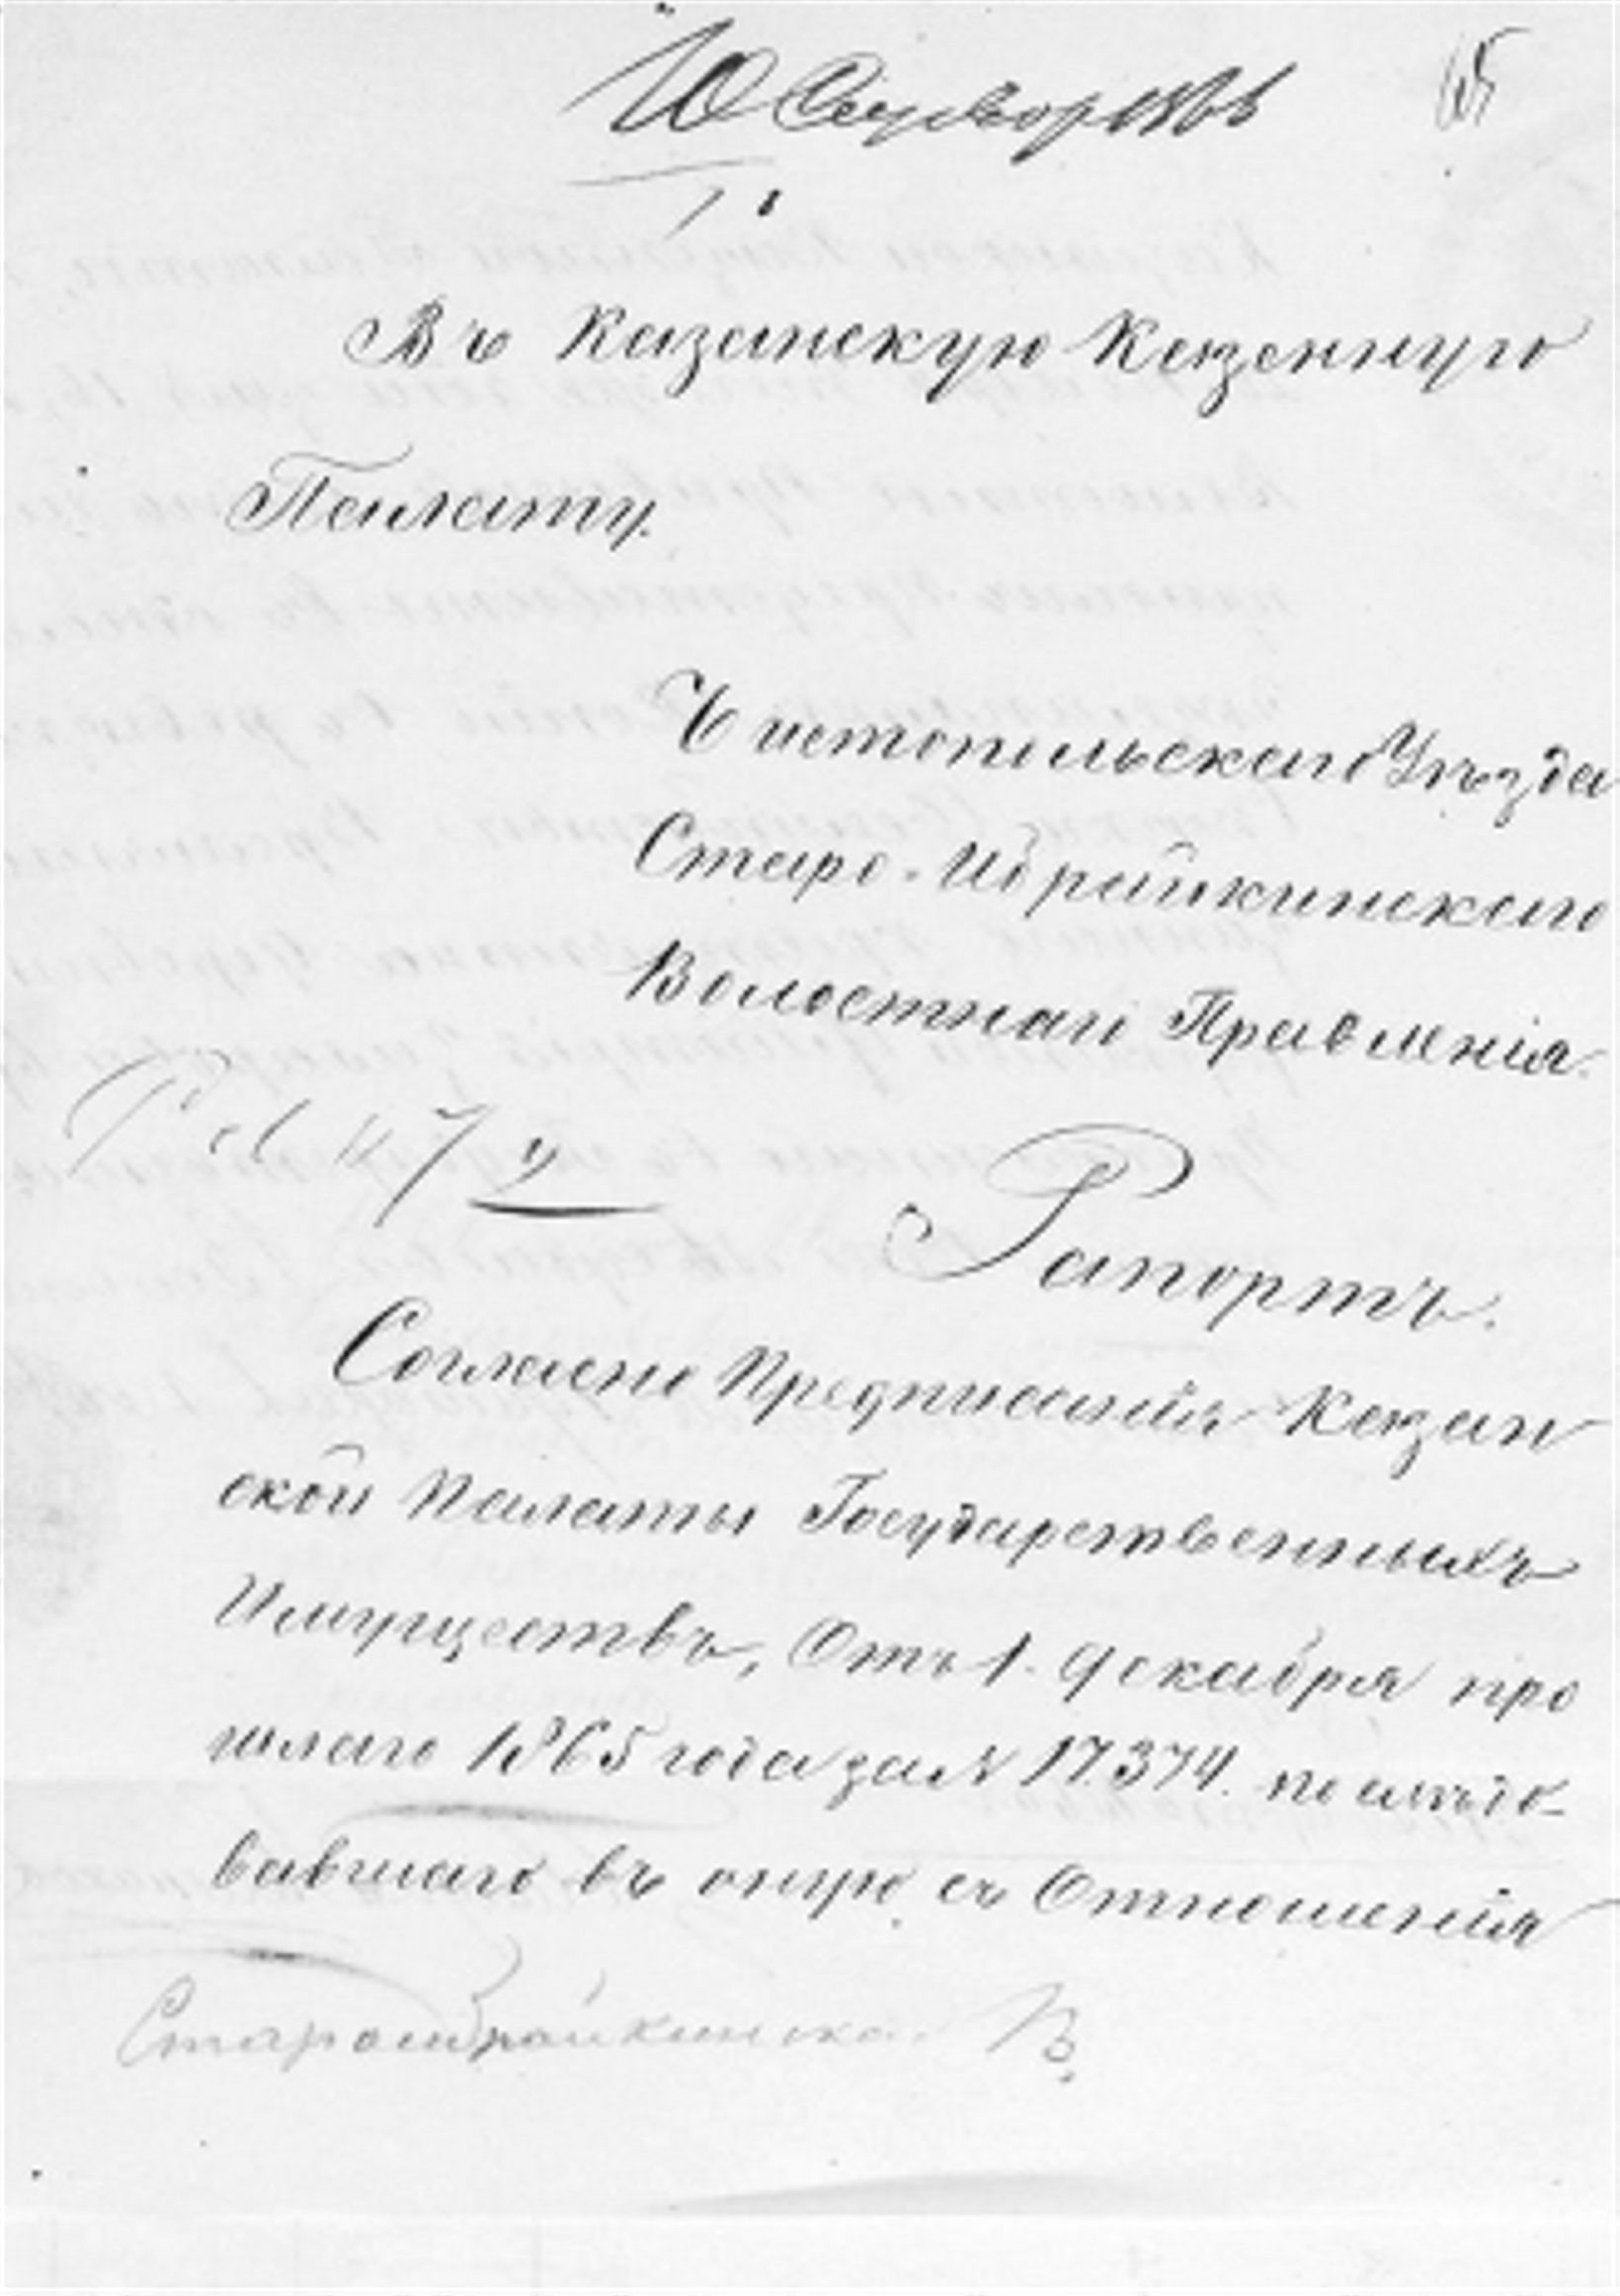 65
Въ Казанскую Казенную
Палату.
Чистопольскаго Уѣзда
Старо-Ибрайкинскаго
Волостнаго Правленія.
Рапортъ.
Согласно Предписанія Казан
ской Палаты Государственныхъ
Имуществъ, Отъ 1. Декабря про
шлаго 1865 года за № 17.374. послѣдо-
вавшаго въ оную съ Отношенія
Староибрайкинска. В.